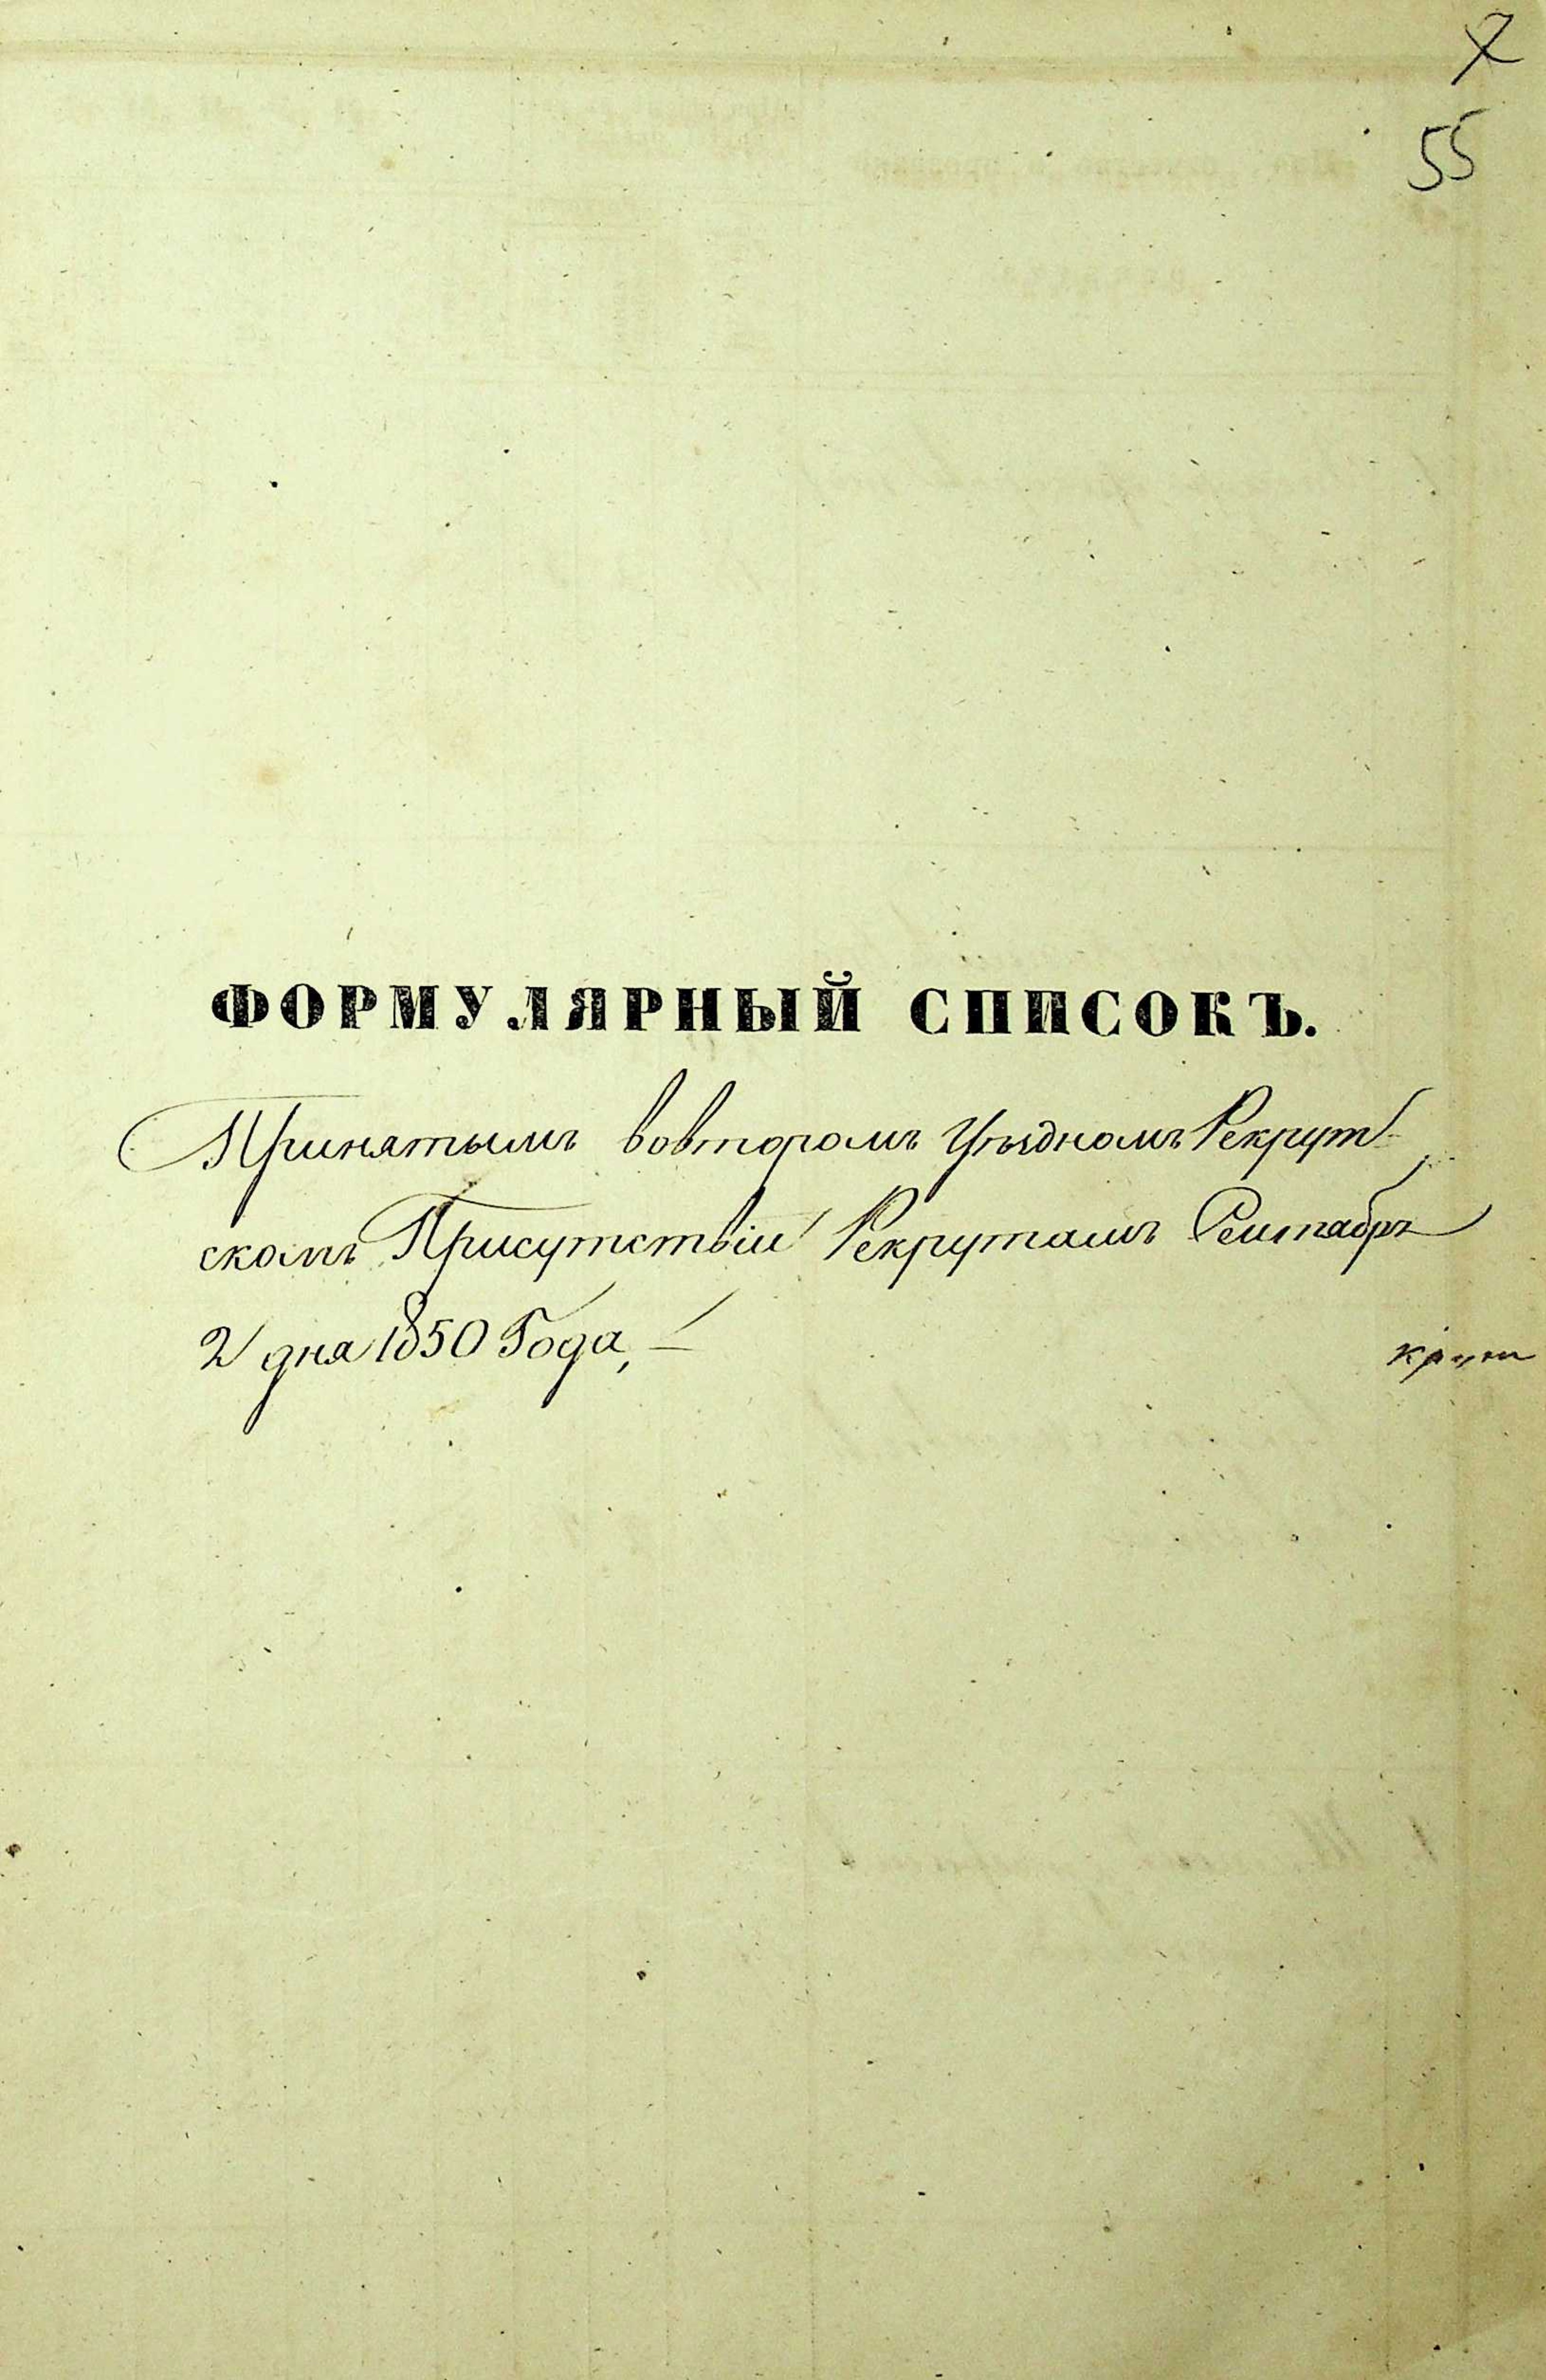 7
55
ФОРМУЛЯРНЫЙ СПИСОКЪ.
Принятымъ вовторомъ Уѣздномъ Рекрут-
скомъ Присутствіи Рекрутамъ Сентабрѣ
2 дня 1850 Года,